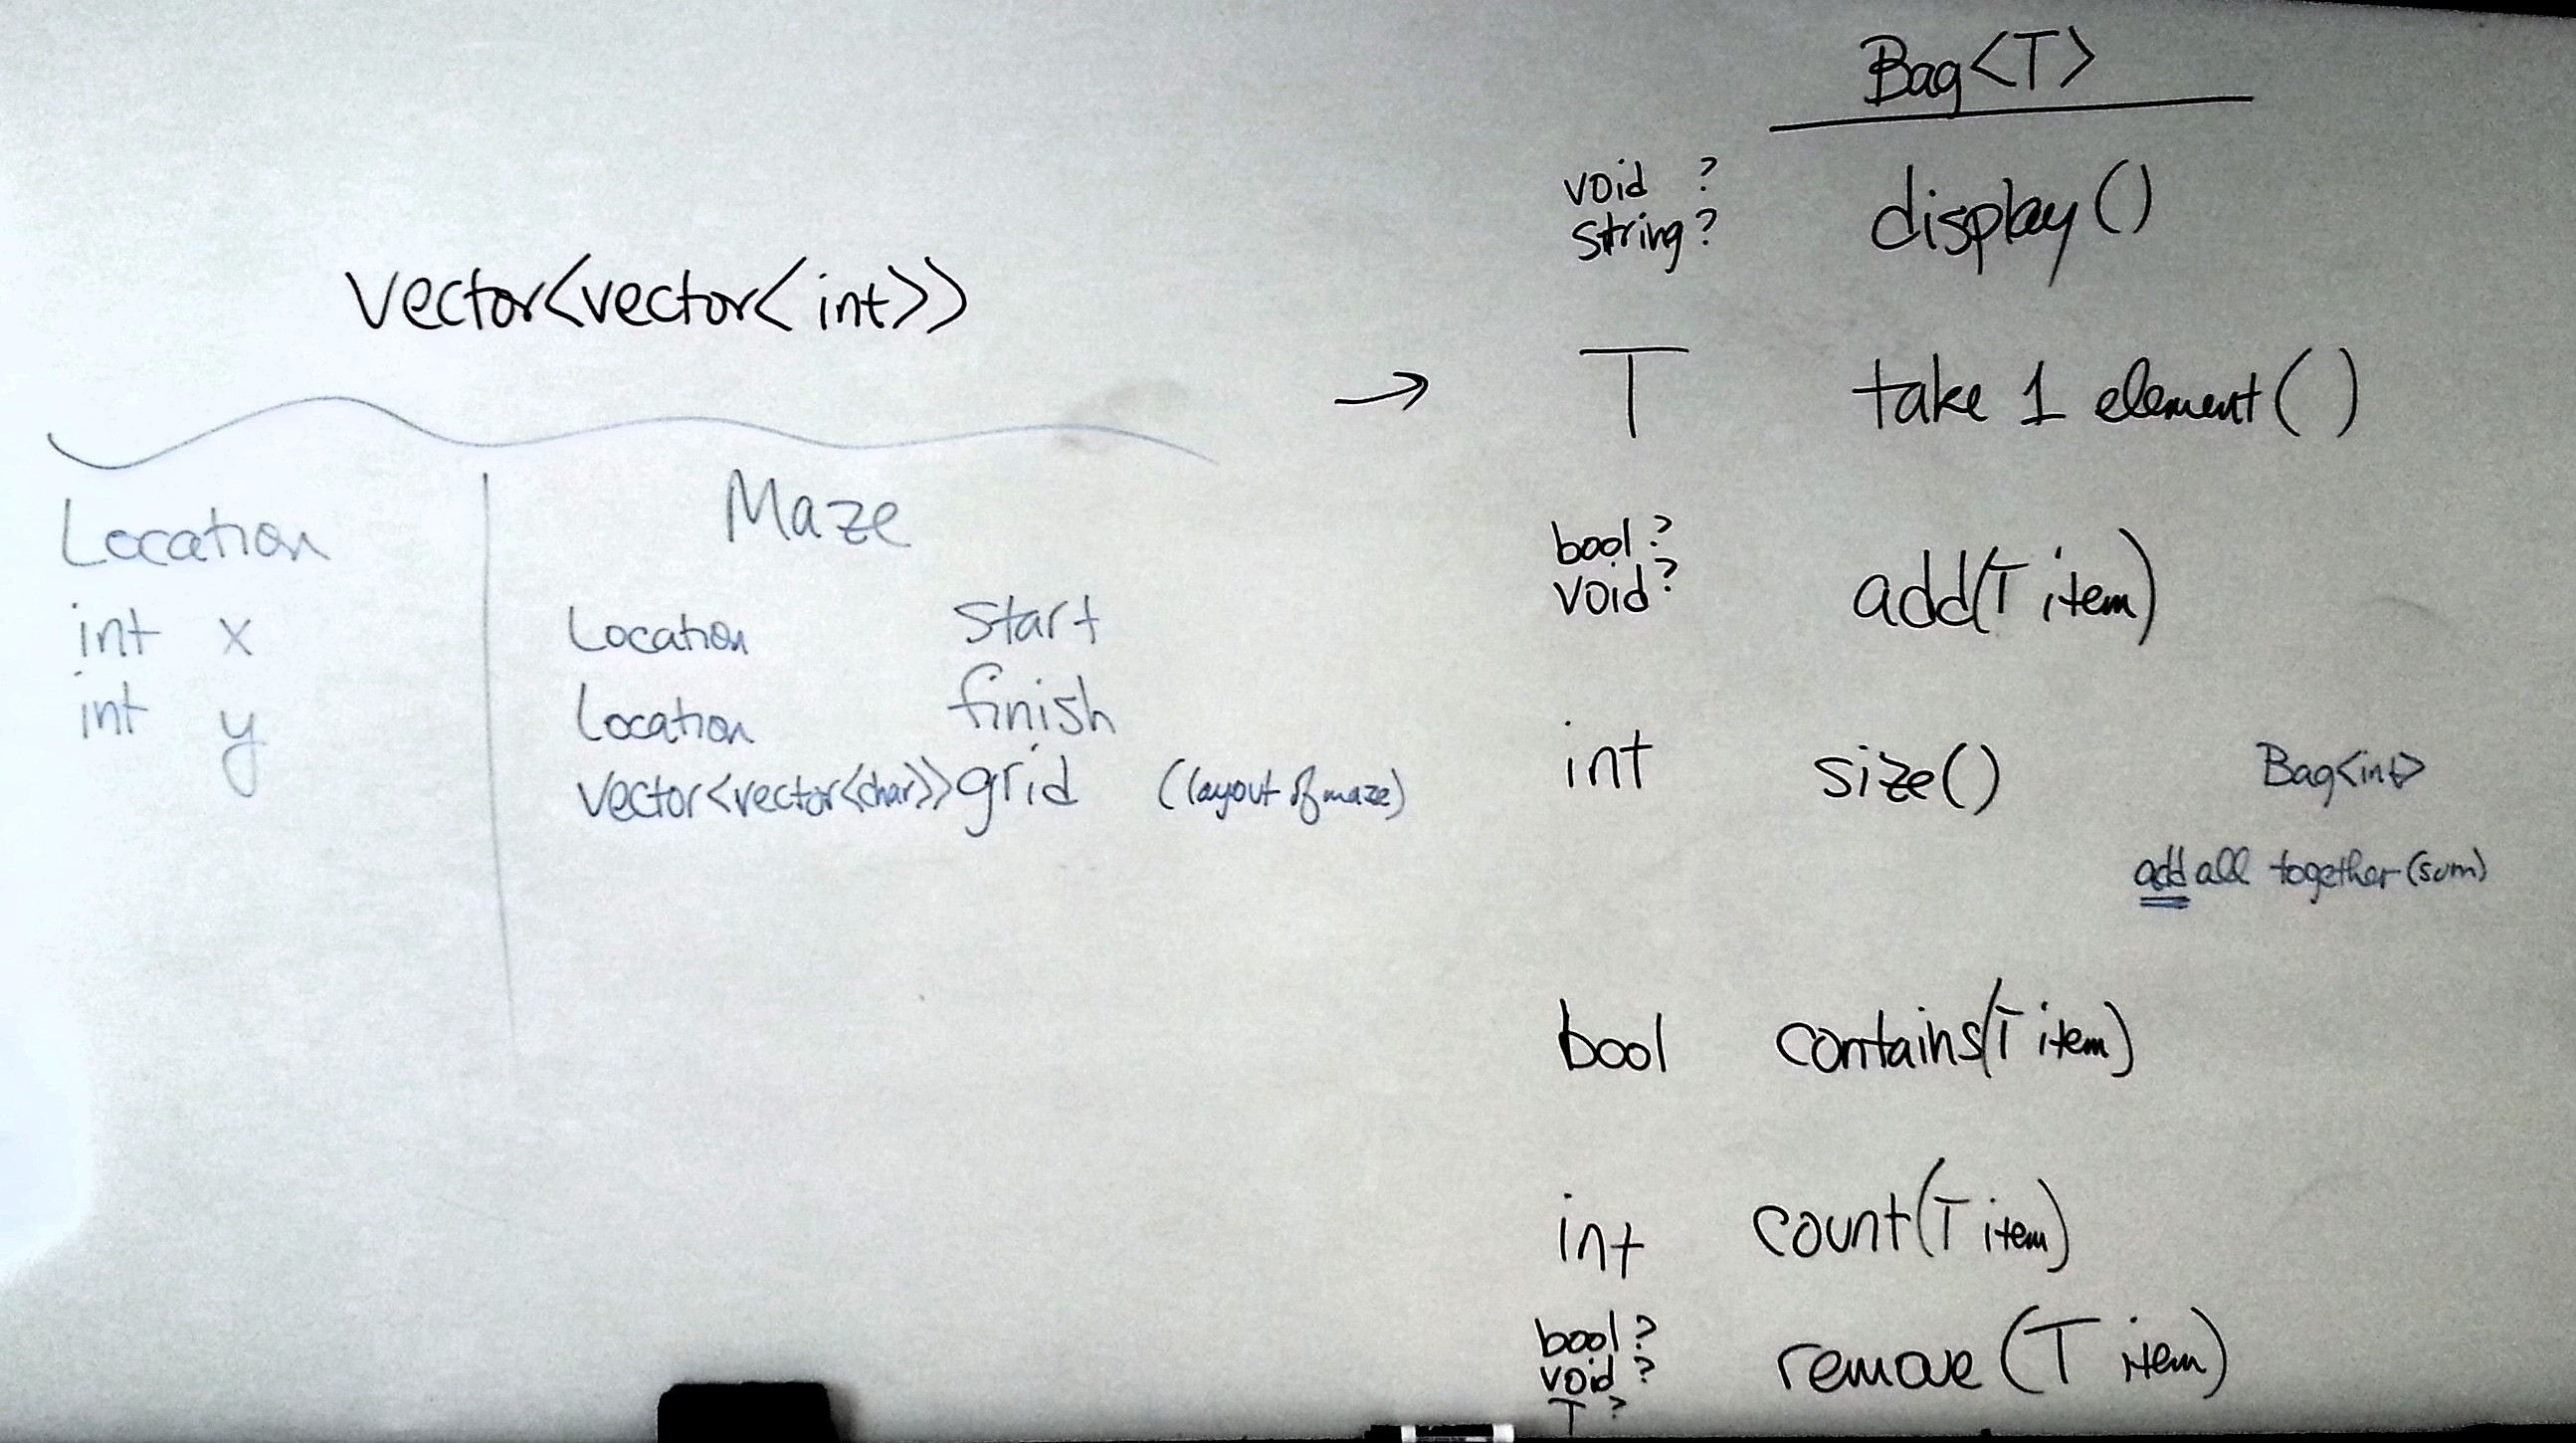 vector<vector<int>>
Location
int x
int y
Maze
Location start
Location finish
vector<vector<char>> grid (layout of maze)
Bag<T>
void ?
string ?
display()
→ T take 1 element( )
bool ?
void ?
add(T item)
int size()
Bag<int>
add all together (sum)
bool contains(T item)
int count(T item)
bool ?
void ?
T ?
remove (T item)